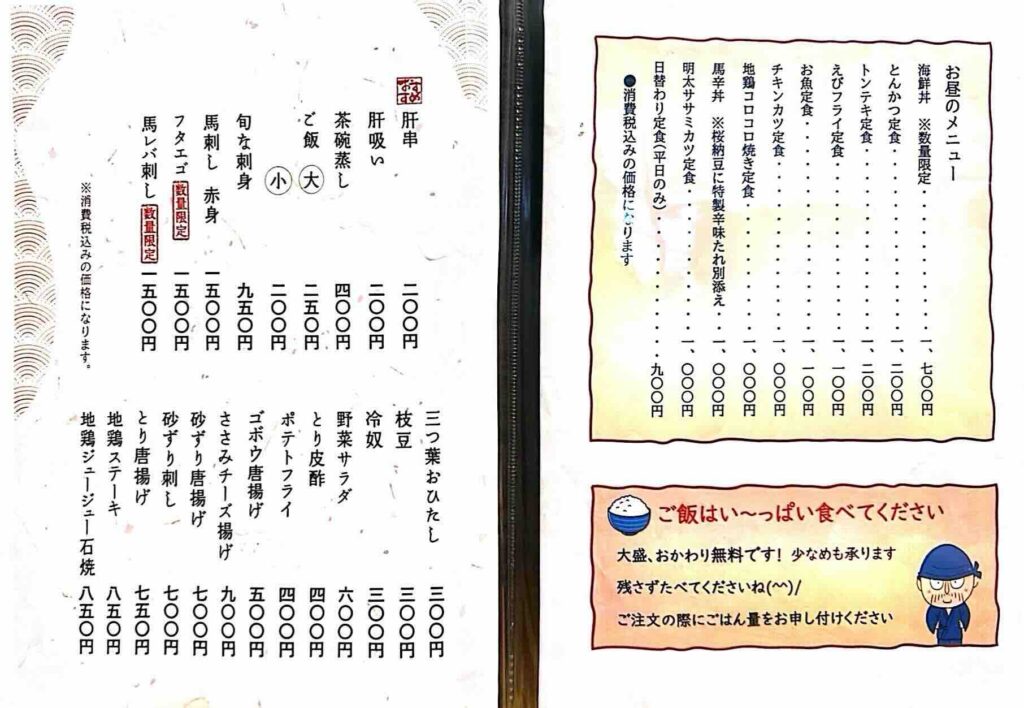 お昼のメニュー
海鮮丼　※数量限定・・・・・・・・・・一、七〇〇円
とんかつ定食・・・・・・・・・・・・一、二〇〇円
トンテキ定食・・・・・・・・・・・・一、二〇〇円
えびフライ定食・・・・・・・・・・・一、一〇〇円
お魚定食・・・・・・・・・・・・・・一、一〇〇円
チキンカツ定食・・・・・・・・・・・一、〇〇〇円
地鶏コロコロ焼き定食・・・・・・・・一、〇〇〇円
馬辛丼　※桜納豆に特製辛味たれ別添え・・一、〇〇〇円
明太ササミカツ定食・・・・・・・・・一、〇〇〇円
日替わり定食(平日のみ)・・・・・・・・・九〇〇円
●消費税込みの価格になります
ご飯はい～っぱい食べてください
大盛、おかわり無料です! 少なめも承ります
残さずたべてくださいね(^^)/
ご注文の際にごはん量をお申し付けください
おすすめ
肝串　二〇〇円
肝吸い　二〇〇円
茶碗蒸し　四〇〇円
ご飯　大　二五〇円
小　二〇〇円
旬な刺身　九五〇円
馬刺し　赤身　一五〇〇円
フタエゴ　数量限定　一五〇〇円
馬レバ刺し　数量限定　一五〇〇円
※消費税込みの価格になります。
三つ葉おひたし　三〇〇円
枝豆　三〇〇円
冷奴　三〇〇円
野菜サラダ　六〇〇円
とり皮酢　四〇〇円
ポテトフライ　四〇〇円
ゴボウ唐揚げ　五〇〇円
ささみチーズ揚げ　九〇〇円
砂ずり唐揚げ　七〇〇円
砂ずり刺し　七〇〇円
とり唐揚げ　七五〇円
地鶏ステーキ　八五〇円
地鶏ジュージュー石焼　八五〇円